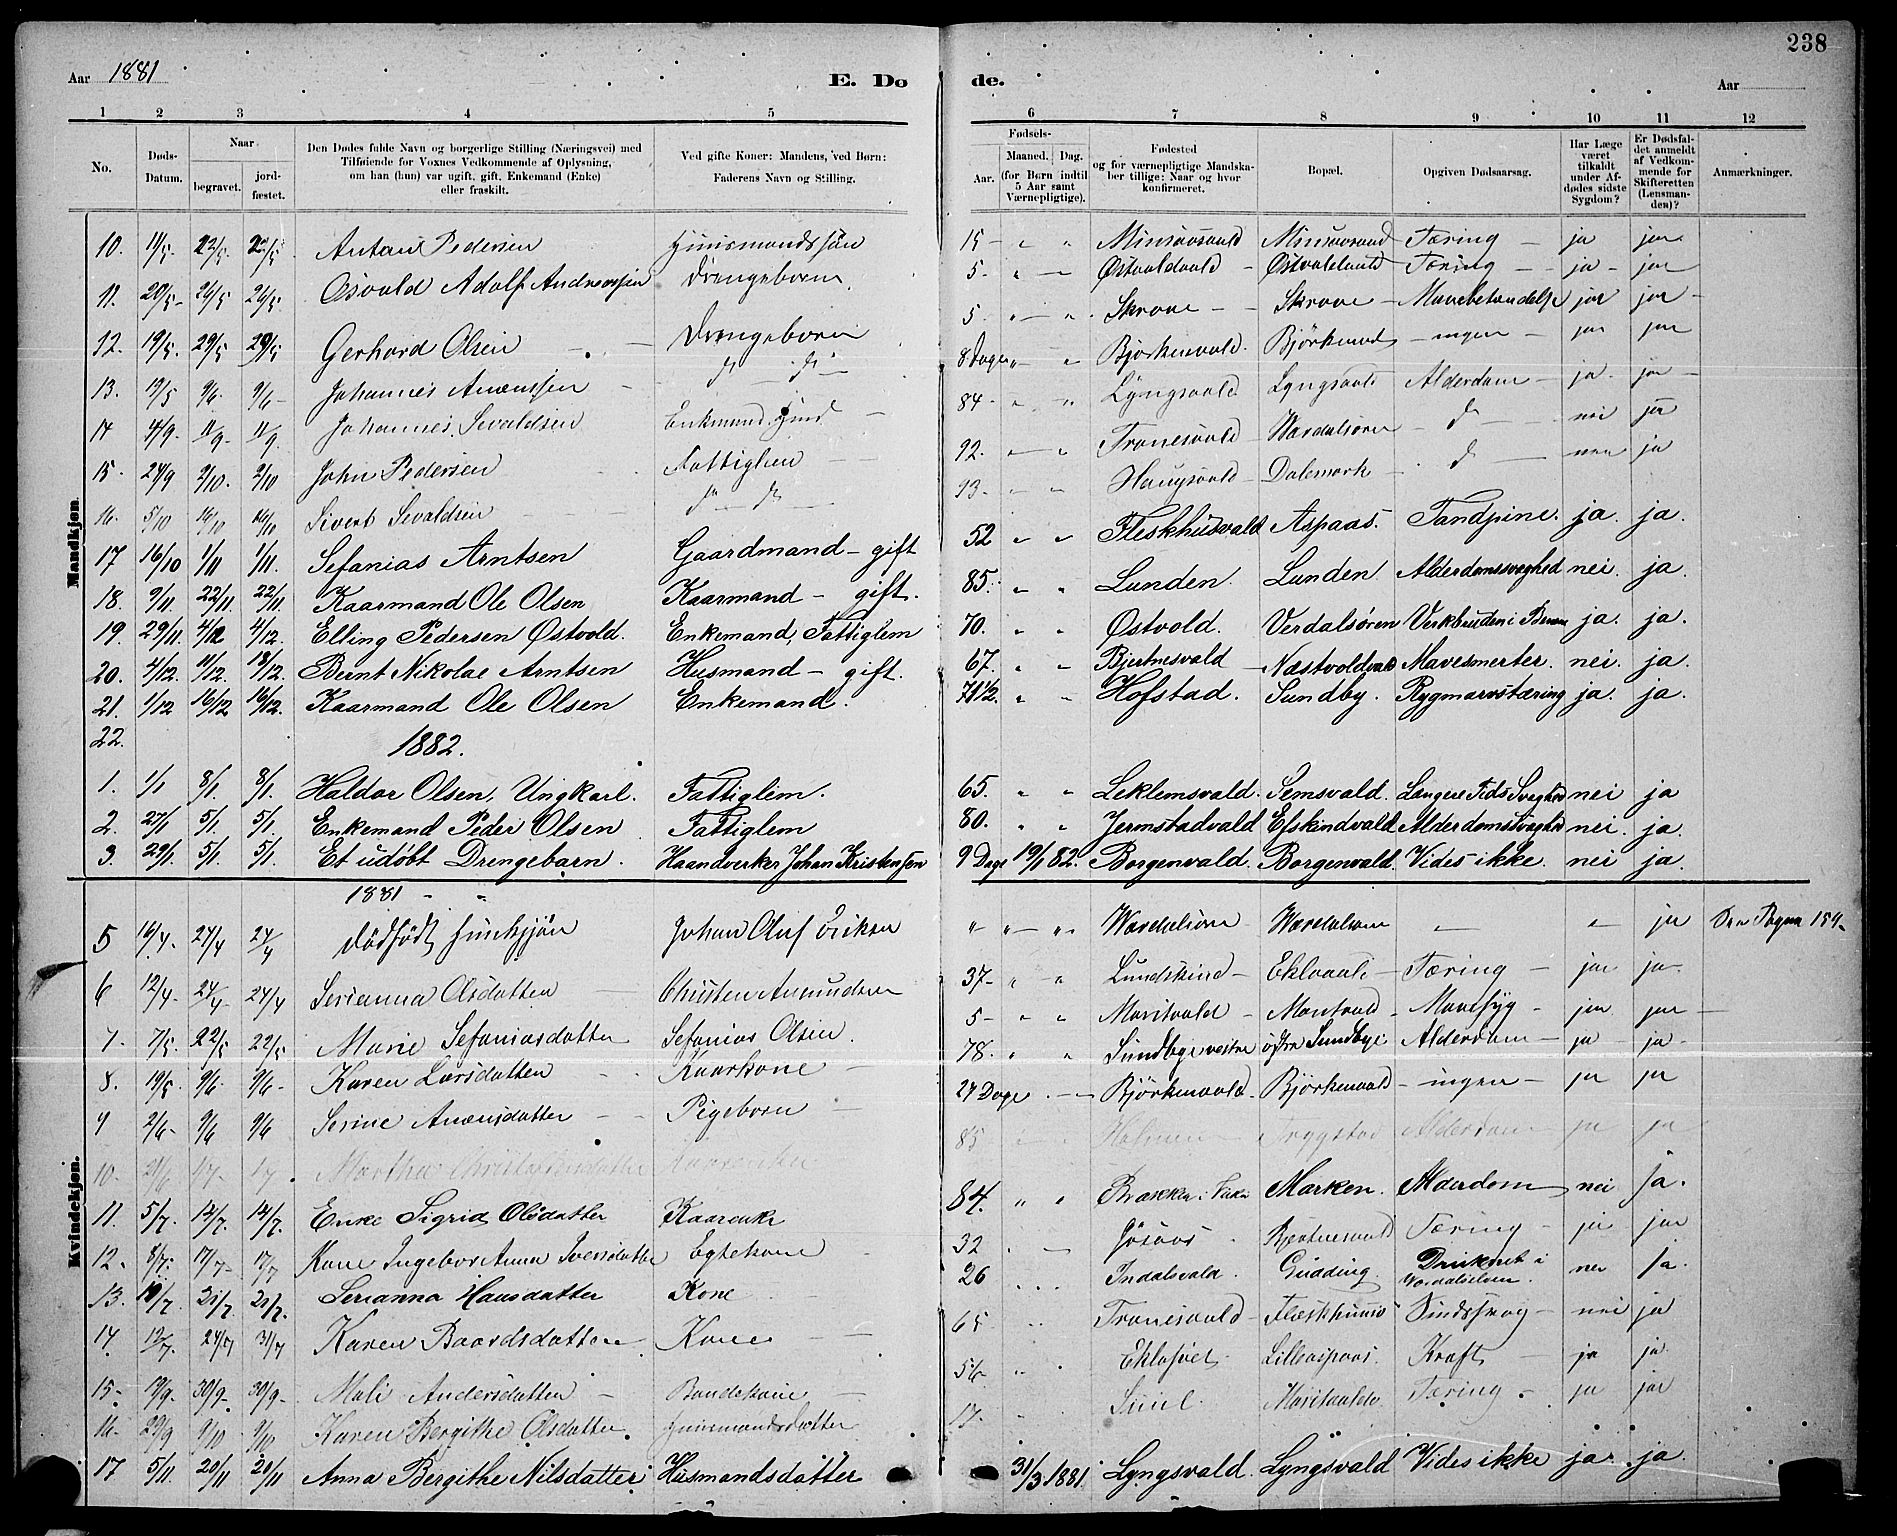 238
Aar 1881
E. Dø
de.
Aar
1 2 3 4 5 6 7 8 9 10 11 12
No.
Døds-Datum.
Naar
begravet.
jord-fæstet.
Den Dødes fulde Navn og borgerlige Stilling (Næringsvei) med
Tilføiende for Voxnes Vedkommende af Oplysning,
om han (hun) var ugift, gift, Enkemand (Enke)
eller fraskilt.
Ved gifte Koner: Mandens, ved Børn:
Faderens Navn og Stilling.
Fødsels-
Aar. Maaned. Dag.
(for Børn indtil
5 Aar samt
Værnepligtige).
Fødested
og for værnepligtige Mandska-
ber tillige: Naar og hvor
konfirmeret.
Bopæl.
Opgiven Dødsaarsag.
Har Læge
været
tilkaldt
under Af-
dødes sidste
Sygdom?
Er Dødsfal-
det anmeldt
af Vedkom-
mende for
Skifteretten
(Lensman-
den)?
Anmærkninger.
Mandkjøn.
10. 11/5 22/5 22/5 Anton Pedersen Huusmandssøn 15 " " Minsaasvald Minsaasvald Tæring ja ja
11. 20/5 26/5 26/5 Osvald Adolf Andreassen Drengebarn 5 " Østvoldvald Østvoldvald Tæring ja ja
12. 19/5 29/5 29/5 Gerhard Olsen Drengebarn 5 " " Skrove Skrove Mavebetændelse ja ja
13. 19/5 9/6 9/6 Johannes Anænssen d d 8 Dage " " Bjørkenvald Bjørkenvald ingen ja ja
14 4/9 11/9 11/9 Johannes Sevaldsen Enkemand 84 " " Lyngsvald Lyngsvald Alderdom ja ja
15. 24/9 2/10 2/10 John Pedersen Fattiglem 92. Tronesvald Værdalsøren d nei ja
16. 5/10 16/10 16/10 Sivert Sevaldsen d d 93 Haugsvald Dalemark d nei ja
17 16/10 1/11 1/11. Sefanias Arntsen Gaardmand gift 52 " " Fleskhusvald Aspaas. Tandpine. ja. ja.
18. 9/11. 22/11 22/11. Kaarmand Ole Olsen Kaarmand gift. 85. " " Lunden. Lunden. Alderdomssvaghed nei. ja.
19. 29/11. 4/12 4/12. Elling Pedersen Østvold. Enkemand, Fattiglem 70. " " Østvold. Verdalsøren ja. ja.
20. 4/12. 11/12. 18/12. Bernt Nikolai Arntsen Husmand gift. 67. " " Bjertnesvald Næstvoldvald Mavesmerter. nei. ja.
21. 1/12 16/12 16/12. Kaarmand Ole Olsen Enkemand. 71 1/2. " " Hofstad. Sundby. Rygmarvstæring ja. ja.
22.
1882.
1. 1/1 8/1. 8/1. Haldor Olsen, Ungkarl. Fattiglem. 65. " " Leklemsvald. Semsvald. Længere Tids Svaghed nei ja
2. 27/1 5/1. 5/1. Enkemand Peder Olsen Fattiglem 80. " " Jermstadvald Efskindvald Alderdomssvaghed nei. ja.
3. 29/1. 5/1. 5/1. Et udøbt Drengebarn. Haandverker Johan Kristensen 9 Dage 19/1 82. Borgenvald. Borgenvald. Vides ikke. nei ja.
Kvindekjøn.
1881
5 16/4. 24/4 24/4 Dødfødt Huunkjøn Johan Oluf Eriksen " " " Værdalsøren Værdalsøren " " ja See Pagina 154.
6 12/4. 24/4 24/4 Serianna Olsdatter Christen Amundsen 37 " " Lundskind Eklovald Tæring ja ja
7. 7/5. 22/5 22/5 Marie Sefaniasdatter Sefanias Olsen. 5 " " Maritvald Maritvald Mavesyg ja ja
8. 19/5. 9/6. 9/6 Karen Larsdatter Kaarkone 78. " " Sundbye vestre østre Sundbye Alderdom ja ja
9 2/6 9/6 9/6 Serine Anænsdatter Pigebarn 24 Dage Bjørkenvald Bjørkenvald ingen ja ja
10. 21/6 1/7 1/7. Martha 85 Holmen Tryggstad Alderdom ja ja
11. 5/7. 14/7. 14/7. Enke Sigrid Olsdatter Kaarenke 84. " " Marken. Alderdom nei ja.
12. 8/7. 17/7 17/7 Kone Ingebor Anna Iversdatter Egtekone 32 Jøsaas Bjertnesvald Tæring ja ja
13. 31/7. 21/7. Serianna Hansdatter Kone 26 Indalsvald. Gudding. Druknet i Værdalselven. nei ja.
14. 12/7. 24/7 31/7 Karen Baardsdatter Kone 65 Tronesvald Flæskhuus nei ja
15. 19/9. 30/9. 30/9. Mali Andersdatter Bondekone 56 Lilleaspaas. Kræft ja ja
16. 29/9 9/10 9/10 Karen Bergithe Olsdatter. Huusmandsdatter 17. Maritvald Tæring ja ja
17 5/11. 20/11 20/11 Anna Bergithe Nilsdatter Husmandsdatter 31/3 1881 Lyngsvald. Lyngsvald Vides ikke ja ja.